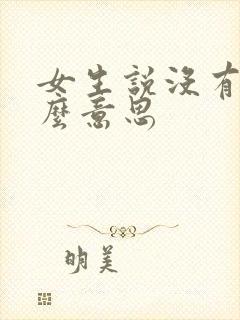 女生說沒有
麼意思
明美